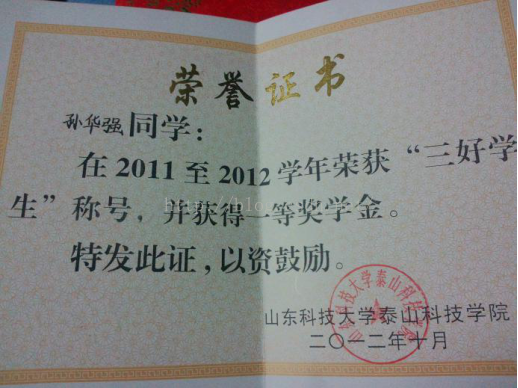 荣誉证书
孙华强同学：
在2011至2012学年荣获“三好学
生”称号，并获得一等奖学金。
特发此证，以资鼓励。
山东科技大学泰山科技学院
二〇一二年十月